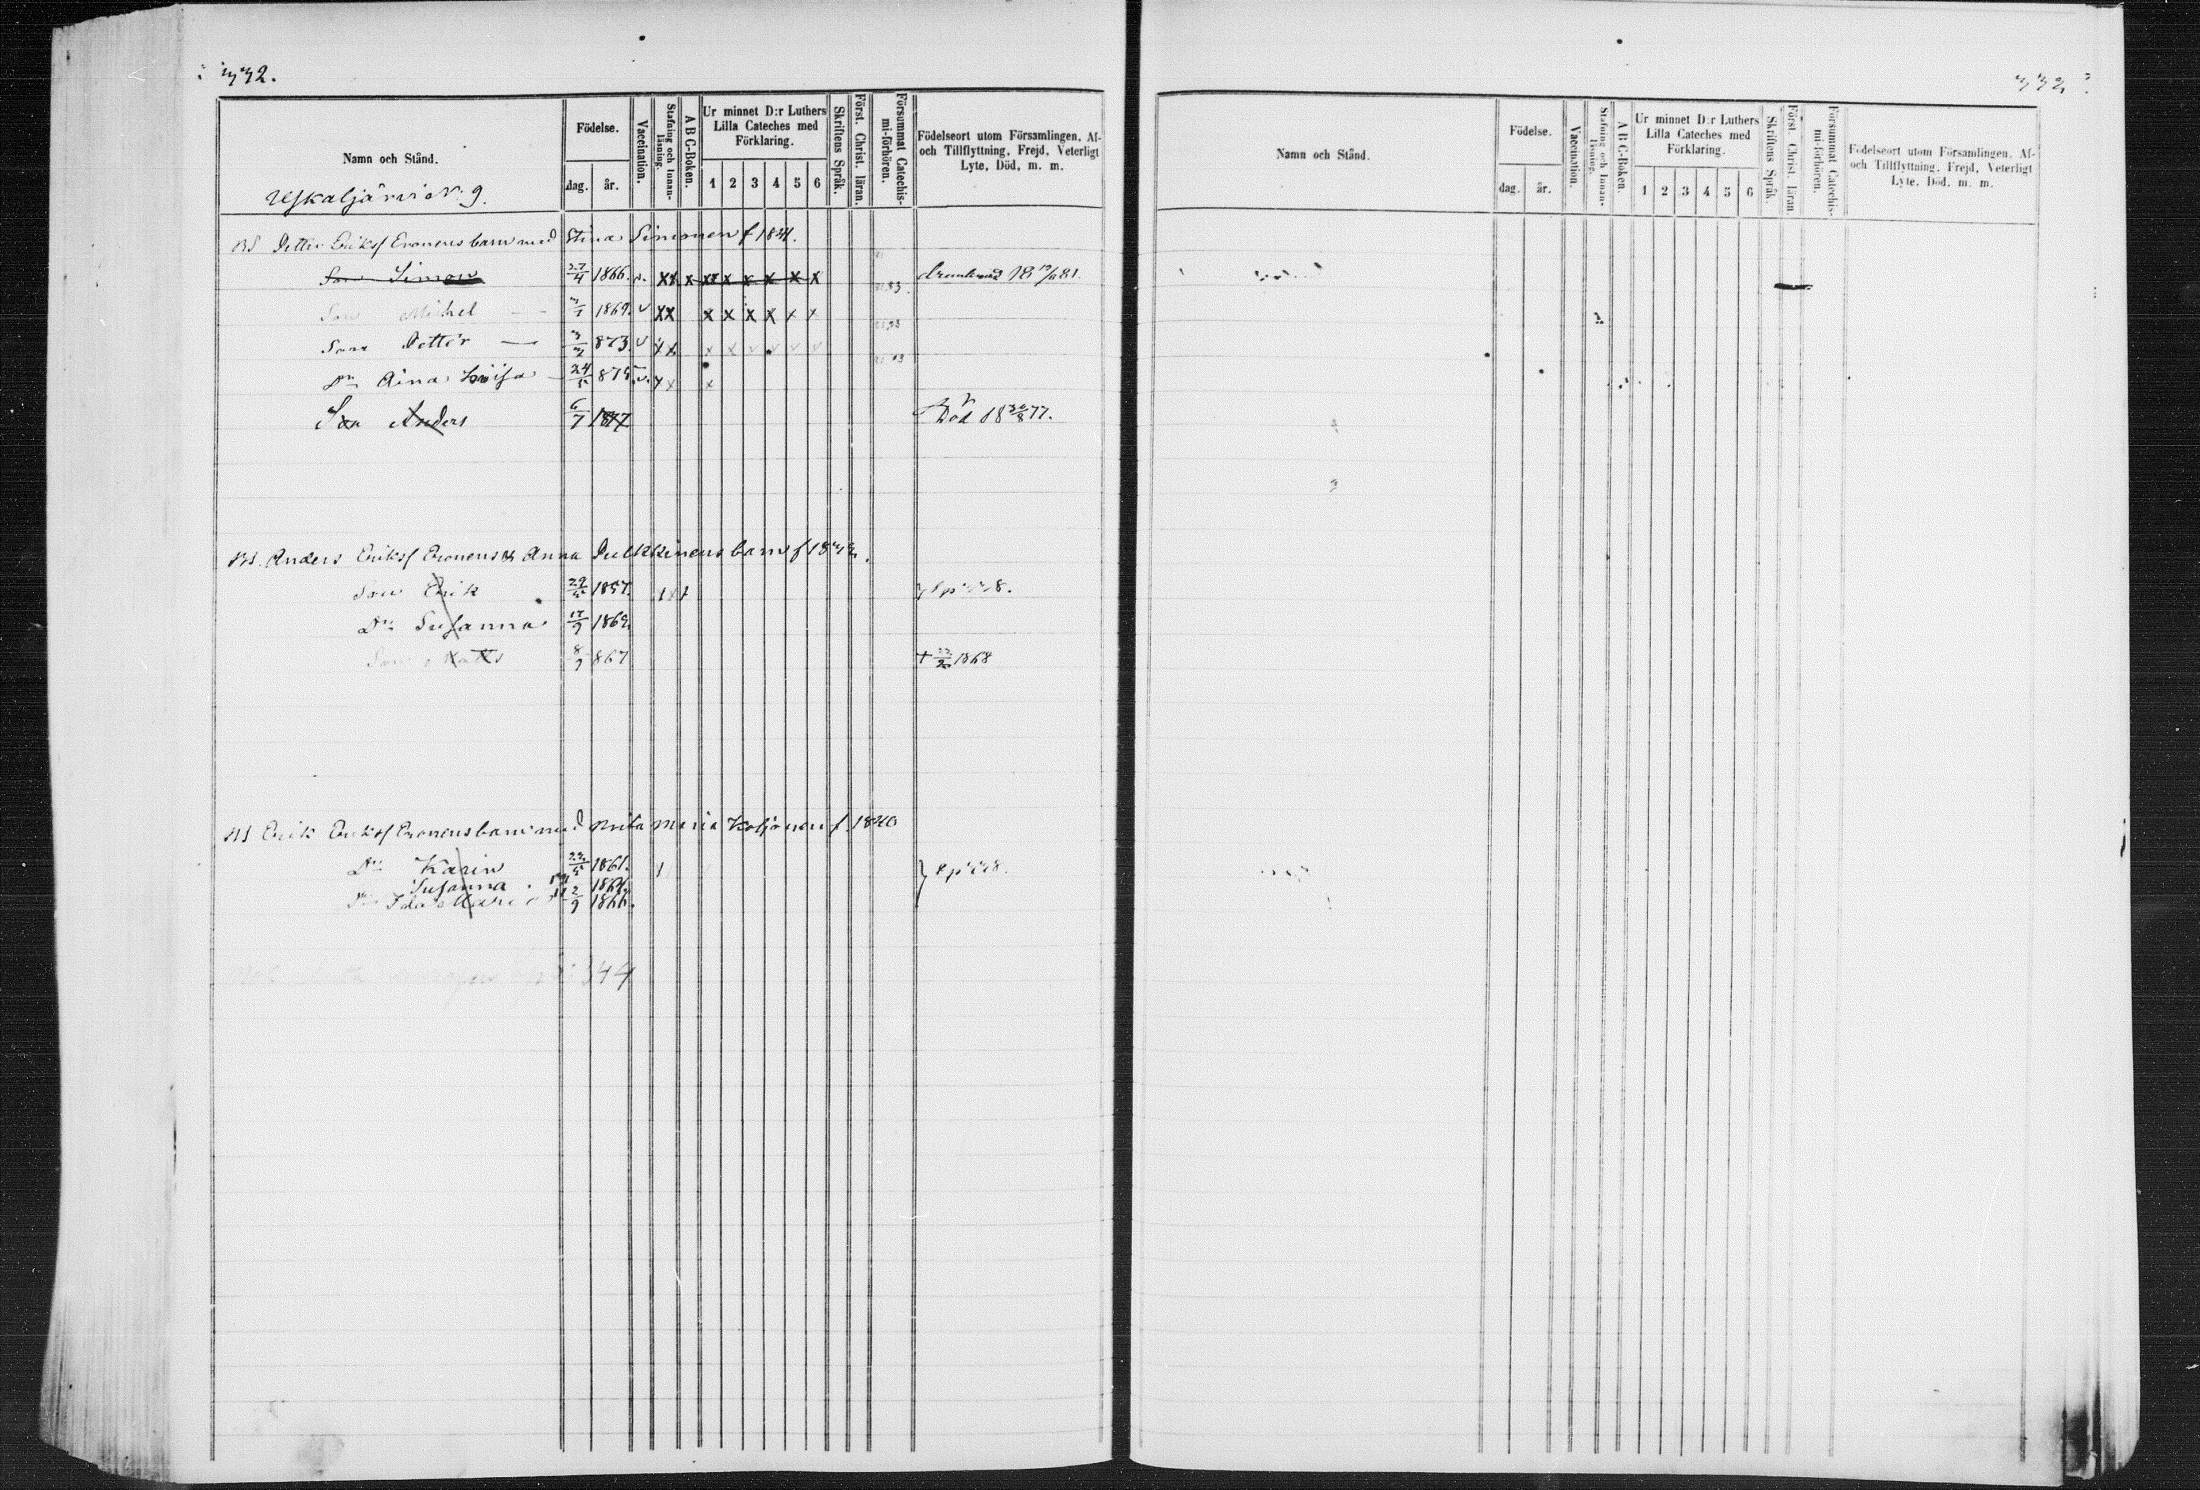 332.
332
Namn och Stånd.
Födelse.
dag. år.
Vaccination.
Stafning och Innan-läsning.
A B C-Boken.
Ur minnet D:r Luthers Lilla Cateches med Förklaring.
1 2 3 4 5 6
Skriftens Språk.
Först. Christ. läran.
Försummat Catechis-mi-förhören.
Födelseort utom Församlingen, Af- och Tillflyttning, Frejd, Veterligt Lyte, Död, m. m.
Uskaljärvi N 9.
BS Petter Eriksf Eronens barn med Stina Simonen f 1841.
Son Simon 27/4 1866. v. xx x xx x x x x x
Son Michel 1869. v xx x x x x x x
Son Petter 873. v xx x x v v v v
Dr Aina Lovisa 24/5 875. v. xx x
Son Anders 6/7 1877 Död 18 77.
BS. Anders Eriksf Eronens & Anna Pulkkinens barn f 1832.
Son Erik 22 1857.
Dr Susanna 17/9 1862
Son Matts 8/9 867 † 1868
BS Erik Eriksf Eronens barn med Anita Maria Koljonen f 1840
Dr Karin 1861.
Susanna 1864
Dr Ida Maria 2/9 1866.
344
Namn och Stånd.
Födelse.
dag. år.
Vaccination.
Stafning och Innan-läsning.
A B C-Boken.
Ur minnet D:r Luthers Lilla Cateches med Förklaring.
1 2 3 4 5 6
Skriftens Språk.
Först. Christ. läran.
Försummat Catechis-mi-förhören.
Födelseort utom Församlingen, Af- och Tillflyttning, Frejd, Veterligt Lyte, Död, m. m.